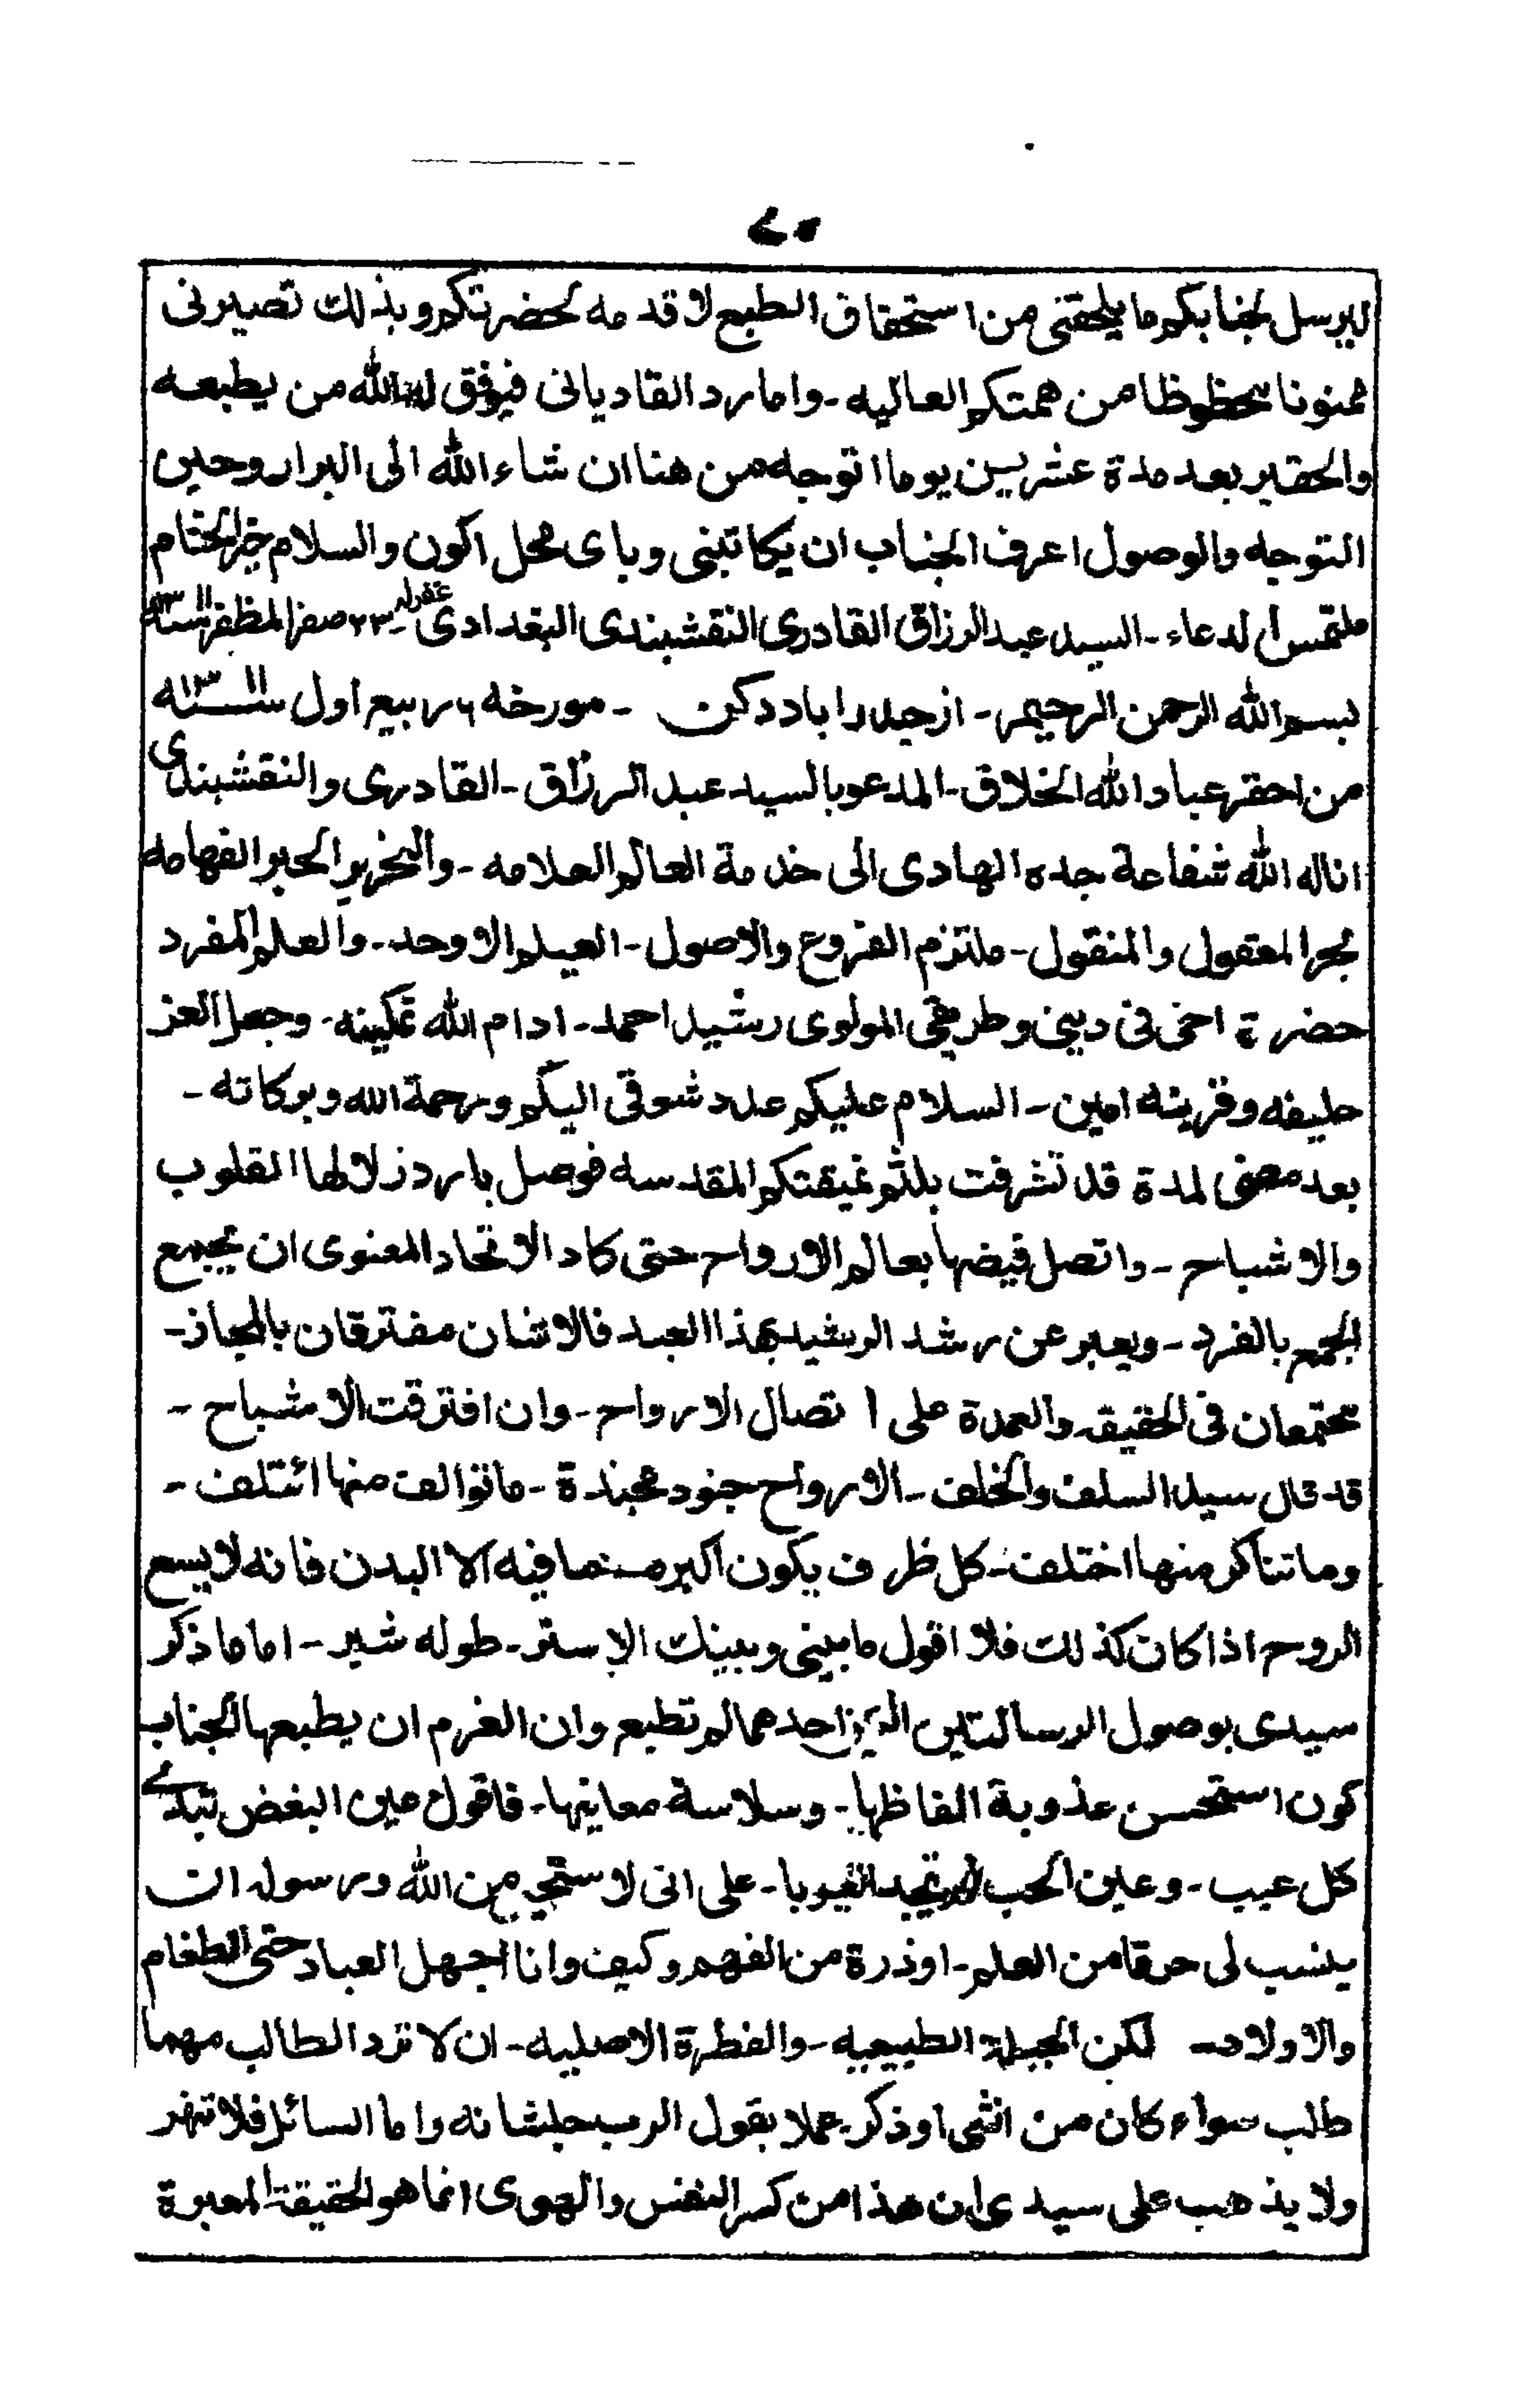 ٤٥
ليرسل لجنابكم ما يلحقنى من استحقاق الطبع لا قدمه لحضرتكم وبذلك تصيرنى
ممنونا محظوظا من همتكم العاليه - واما رد القاديانى فيوفق له الله من يطبعه
والحقير بعد مدة عشرين يوما اتوجه من هنا ان شاء الله الى البرار وحين
التوجه والوصول اعرف الجناب ان يكاتبنى وباى محل اكون والسلام خير الختام
ملتمس الدعاء - السيد عبد الرزاق القادرى النقشبندى البغدادى غفرله - ٢٣ صفر المظفر سنة ١٣١١ه
بسم الله الرحمن الرحيم - از حيدراباد دكن - مورخه ٦ ربيع اول سنه ١٣١١ه
من احقر عباد الله الخلاق - المدعو بالسيد عبد الرزاق - القادرى والنقشبندى
اناله الله شفاعة جده الهادى الى خدمة العالم العلامه - والنحرير الحبر الفهامه
بحر المعقول والمنقول - ملتزم الفروع والاصول - العيلم الاوحد - والعلم المفرد
حضرة اخى فى دينى وطريقى المولوى رشيد احمد - ادام الله تمكينه - وجعل العز
حليفه وقرينه امين - السلام عليكم عدد شوقى اليكم ورحمة الله وبركاته -
بعد مضى لمدة قد تشرفت بلثم نميقتكم المقدسه فوصل بارد زلالها القلوب
والاشباح - واتصل فيضها بعالم الارواح حتى كاد الاتحاد المعنوى ان يجمع
الجمع بالفرد - ويعبر عن رشد الرشيد بهذا العبد فالاثنان مفترقان بالمجاز -
مجتمعان فى الحقيقه والعمدة على ا تصال الارواح - وان افترقت الاشباح -
قد قال سيد السلف والخلف - الارواح جنود مجندة - ما توالف منها ائتلف -
وما تناكر منها اختلف - كل ظرف يكون اكبر مما فيه الا البدن فانه لا يسع
الروح اذا كان كذلك فلا اقول ما بينى وبينك الا ستر - طوله شبر - اما ما ذكر
سيدى بوصول الرسالتين احدهما لم تطبع وان الغرم ان يطبعها الجناب
كون استحسن عذوبة الفاظها - وسلاسة معانيها - فاقول عين البغض تبدى
كل عيب - وعين الحب لا تجد العيوبا - على انى لا ستحى من الله ورسوله ان
ينسب لى حرفا من العلم - او ذرة من الفهم وكيف وانا اجهل العباد حتى الطغام
والاولاد - لكن الجبلة الطبيعيه - والفطرة الاصليه - ان لا ترد الطالب مهما
طلب سواء كان من انثى او ذكر - عملا بقول الرب جلشانه واما السائل فلا تنهر
ولا يذهب على سيدى ان هذا من كسر النفس والهوى انما هو الحقيقة المعبرة